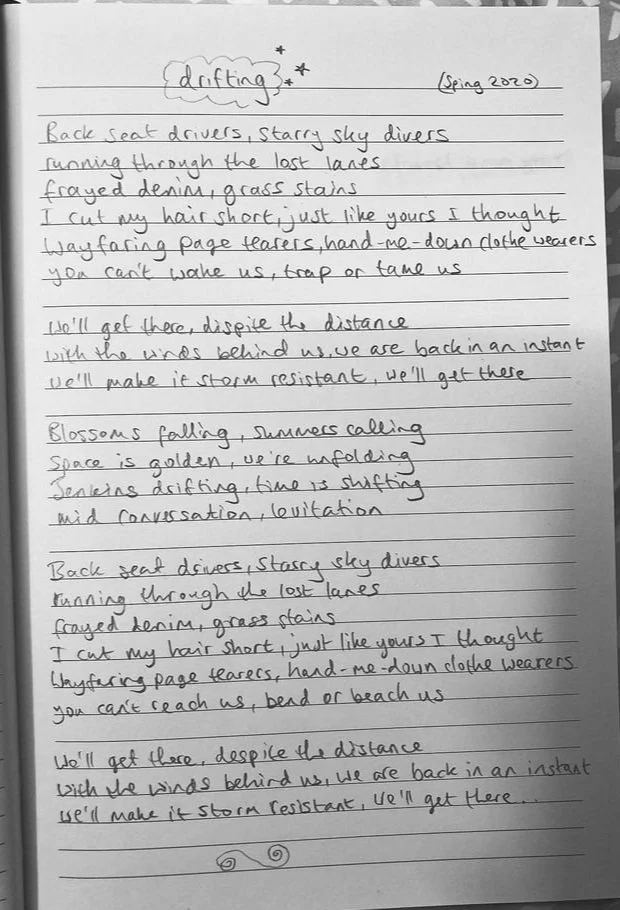 drifting
(Sping 2020)
Back seat drivers, starry sky divers
running through the lost lanes
frayed denim, grass stains
I cut my hair short, just like yours I thought
Wayfaring page tearers, hand-me-down clothe wearers
you can't wake us, trap or tame us
We'll get there, dispite the distance
with the winds behind us, we are back in an instant
we'll make it storm resistant, we'll get there
Blossoms falling, summers calling
Space is golden, we're unfolding
Jenkins drifting, time is shifting
mid conversation, levitation
Back seat drivers, starry sky divers
running through the lost lanes
frayed denim, grass stains
I cut my hair short, just like yours I thought
Wayfaring page tearers, hand-me-down clothe wearers
you can't reach us, bend or beach us
We'll get there, despite the distance
with the winds behind us, we are back in an instant
we'll make it storm resistant, we'll get there..